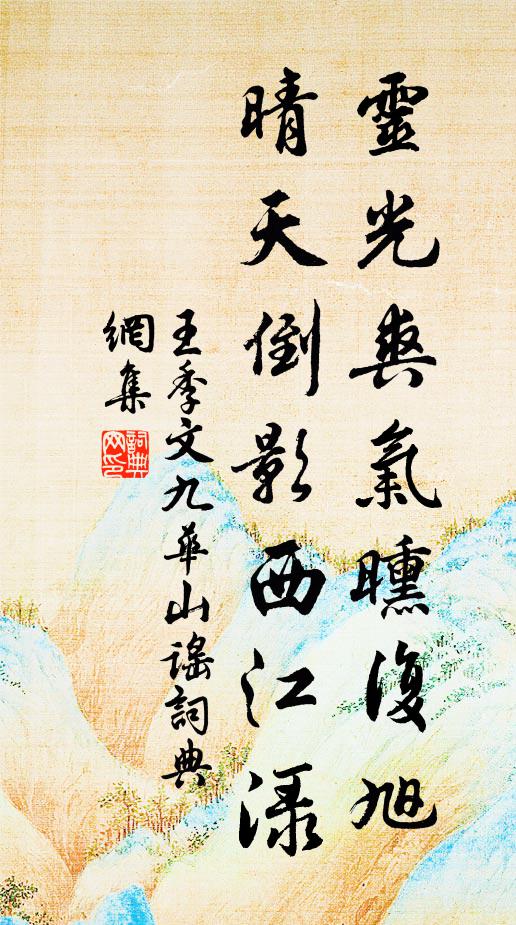 靈光爽氣曛復旭
晴天倒影西江淥
王季文九華山謠詞典
網集
詞典
網印